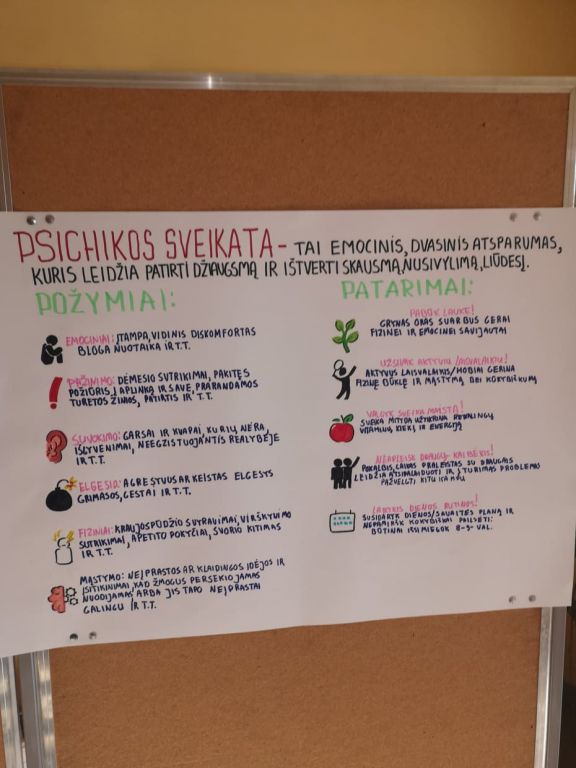 PSICHIKOS SVEIKATA - TAI EMOCINIS, DVASINIS ATSPARUMAS,
KURIS LEIDŽIA PATIRTI DŽIAUGSMĄ IR IŠTVERTI SKAUSMĄ, NUSIVYLIMĄ, LIŪDESĮ.
POŽYMIAI:
EMOCINIAI: ĮTAMPA, VIDINIS DISKOMFORTAS
BLOGA NUOTAIKA IR T.T.
PAŽINIMO: DĖMESIO SUTRIKIMAI, PAKITĘS
POŽIŪRIS Į APLINKĄ IR SAVE, PRARANDAMOS
TURĖTOS ŽINIOS, PATIRTIS IR T.T.
SUVOKIMO: GARSAI IR KVAPAI, KURIŲ NĖRA,
IŠGYVENIMAI, NEEGZISTUOJANTIS REALYBĖJE
IR T.T.
ELGESIO: AGRESTUOS AR KEISTAS ELGESYS
GRIMASOS, GESTAI IR T.T.
FIZINIAI: KRAUJOSPŪDŽIO SVYRAVIMAI, VIRŠKYIMO
SUTRIKIMAI, APETITO POKYČIAI, SVORIO KITIMAS
IR T.T.
MĄSTYMO: NEĮPRASTOS AR KLAIDINGOS IDĖJOS IR
ĮSITIKINIMAI, KAD ŽMOGUS PERSEKIOJAMAS
NUODIJAMAS ARBA JIS TAPO NEĮPRASTAI
GALINGU IR T.T.
PATARIMAI:
PABŪK LAUKE!
GRYNAS ORAS SVARBUS GERAI
FIZINEI IR EMOCINEI SAVIJAUTAI
UŽSIIMK AKTYVIU LAISVALAIKIU!
AKTYVUS LAISVALAIKIS/HOBIAI GERINA
FIZINĘ BŪKLĘ IR MĄSTYMĄ BEI KŪRYBIŠKUMĄ
VALGYK SVEIKĄ MAISTĄ!
SVEIKA MITYBA UŽTIKRINA REIKALINGŲ
VITAMINŲ KIEKĮ IR ENERGIJĄ
NEAPLEISK DRAUGŲ
POKALBIS, LAIKAS PRALEISTAS SU DRAUGAIS
LEIDŽIA ATSIPALAIDUOTI IR Į TURIMAS PROBLEMAS
PAŽVELGTI KITU KAMPU
LAIKYKIS DIENOS RUTINOS!
SUSIDARYK DIENOS/SAVAITĖS PLANĄ IR
NEPAMIRŠK KOKYBIŠKAI PAILSĖTI:
BŪTINAI IŠSIMIEGOK 8-9 VAL.